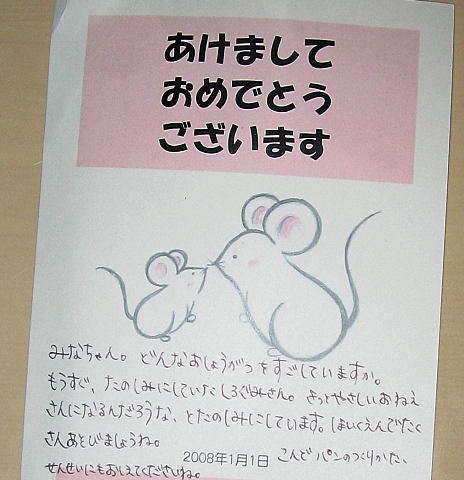 あけまして
おめでとう
ございます
みなちゃん。どんなおしょうがつをすごしていますか。
もうすぐ、たのしみにしていたしろぐみさん。きっとやさしいおねえ
さんになるんだろうな、とたのしみにしています。ほいくえんでたく
さんあそびましょうね。
2008年1月1日 こんど パンのつくりかた、
せんせいにもおしえてくださいね。